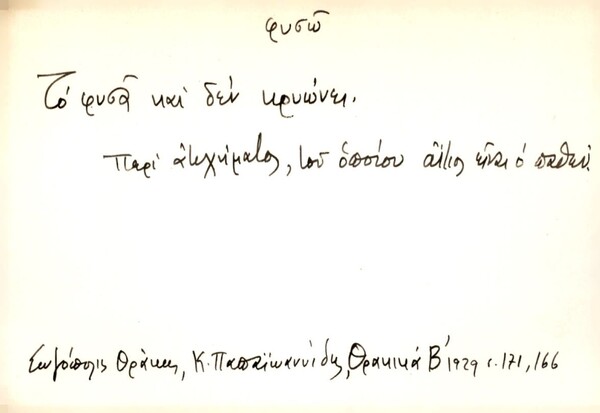 φυσῶ
Τό φυσᾶ καί δέν κρυώνει.
Περί ἀτυχήματος, τοῦ ὁποίου αἴτιος εἶναι ὁ παθών.
Σωζόπολις Θράκης, Κ. Παπαϊωαννίδης, Θρακικά Β' 1929 σ. 171, 166